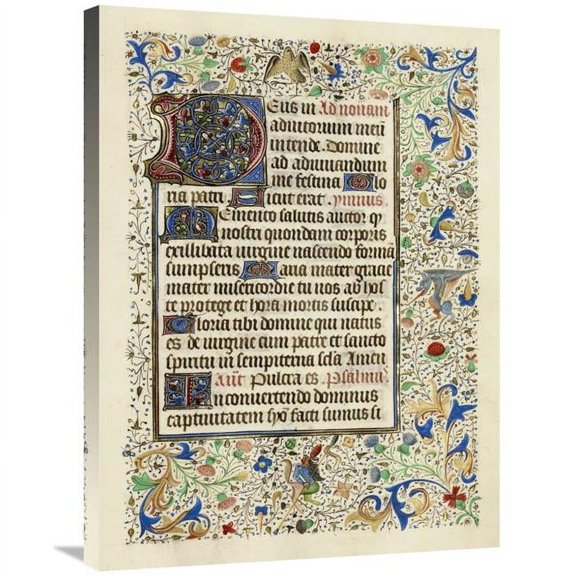 Deus in Ad nonam
adiutorium meu
intende. Domine
ad adiuuandum
me festina Glo
ria patri Sicut erat. ymnus.
Memento salutis auctor q
nostri quondam corporis
ex illibata uirgine nascendo formā
sumpseris Maria mater gracie
mater misericordie tu nos ab hos
te protege et hora mortis suscipe
Gloria tibi domine qui natus
es de uirgine cum patre et sancto
spiritu in sempiterna sc̄la Amen
Ant̄ Pulcra es. Psalmus
In conuertendo dominus
captiuitatem syō facti sumus si